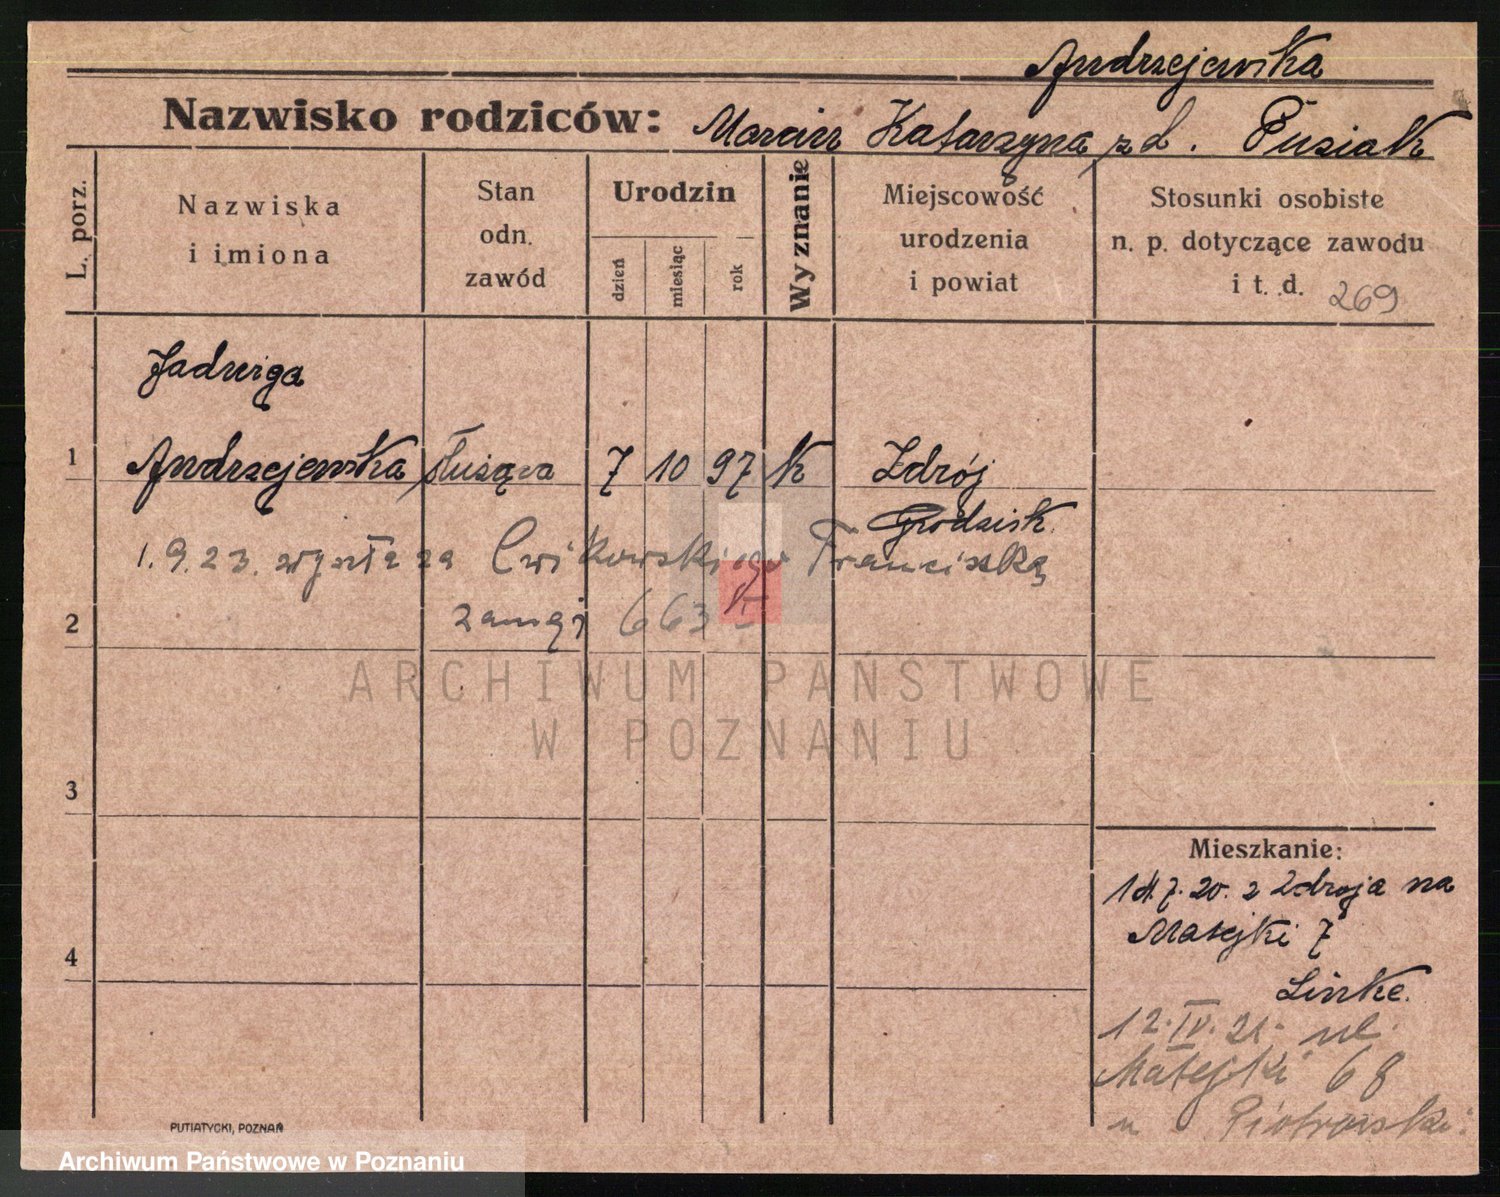 Andrzejewska
Nazwisko rodziców: Marcin Katarzyna z d. Pusiak
L. porz.
Nazwiska
i imiona
Stan
odn.
zawód
Urodzin
dzień
miesiąc
rok
Wyznanie
Miejscowość
urodzenia
i powiat
Stosunki osobiste
n. p. dotyczące zawodu
i t. d. 269
Jadwiga
1 Andrzejewska służąca 7 10 97 k Zdrój
Grodzisk.
1.9.23. wyszła za Cwikowskiego Franciszka
2 zamąż 663
3
4
Mieszkanie:
14.7.20. z Zdroja na
Matejki 7
Linke.
12.IV.21. ul.
Matejki 68
u Piotrowski
PUTIATYCKI, POZNAŃ
ARCHIWUM PAŃSTWOWE
W POZNANIU
Archiwum Państwowe w Poznaniu